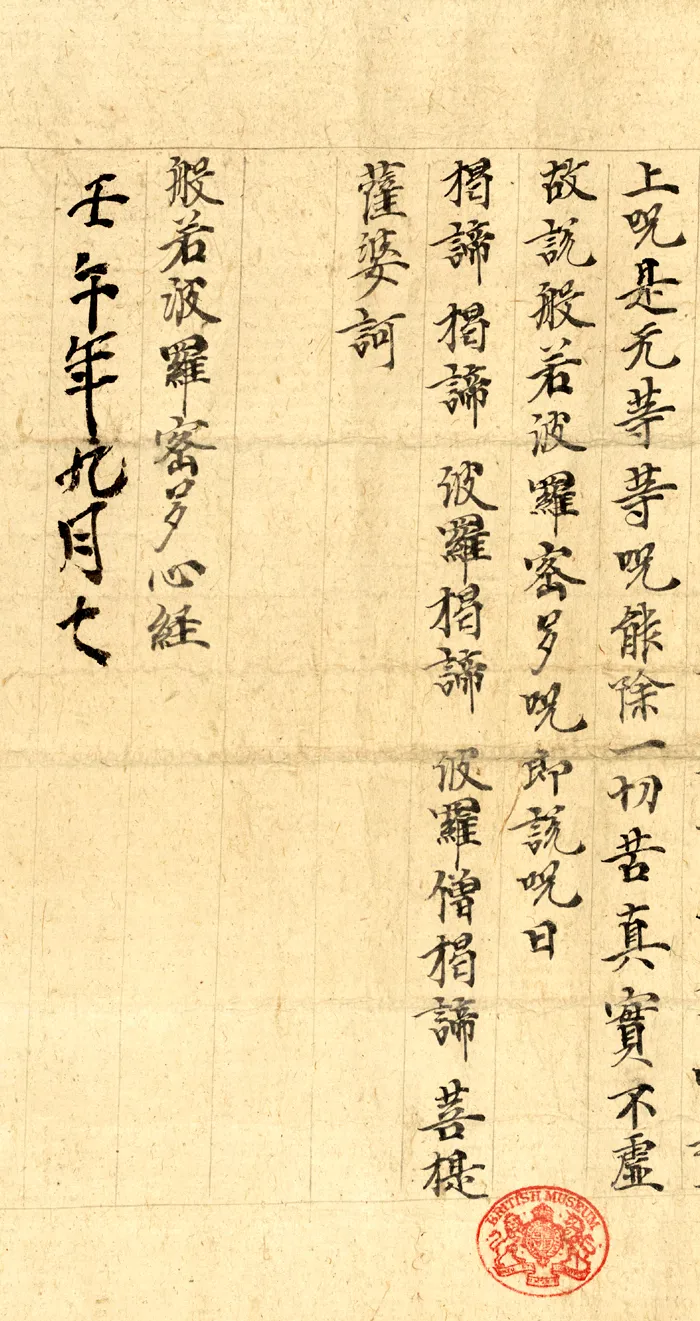 上呪是无等等呪能除一切苦真實不虛
故說般若波羅蜜多呪即說呪曰
揭諦揭諦 波羅揭諦 波羅僧揭諦 菩提
薩婆訶
般若波羅蜜多心経
壬午年九月七
BRITISH MUSEUM